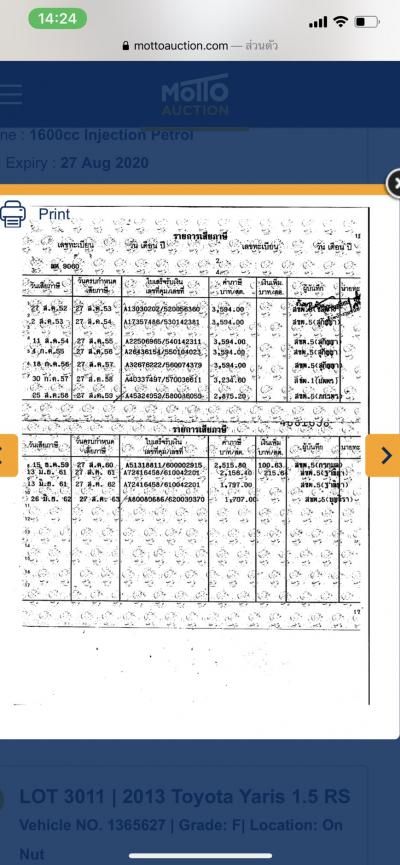 14:24
mottoauction.com — ส่วนตัว
MOTTO
AUCTION
ne : 1600cc Injection Petrol
Expiry : 27 Aug 2020
Print
รายการเสียภาษี
เลขทะเบียน วัน เดือน ปี เลขทะเบียน วัน เดือน ปี
9060
วันเสียภาษี วันครบกำหนดเสียภาษี ใบเสร็จรับเงินเลขที่คุม/เลขที่ ค่าภาษี บาท/สต. เงินเพิ่ม บาท/สต. ผู้บันทึก
27 ส.ค.52 27 ส.ค.53 A13030202/520056360 3,594.00
2 ส.ค.53 27 ส.ค.54 A17357486/530142381 3,594.00
11 ส.ค.54 27 ส.ค.55 A22506965/540142311 3,594.00
27 ส.ค.56 A26436154/550104023 3,594.00
18 ก.ค.56 27 ส.ค.57 A32676222/560074379 3,594.00
30 ก.ค.57 27 ส.ค.58 A40337497/570036611 3,234.60
25 ส.ค.58 27 ส.ค.59 A45324953/580036059 2,875.20
รายการเสียภาษี
วันเสียภาษี วันครบกำหนดเสียภาษี ใบเสร็จรับเงินเลขที่คุม/เลขที่ ค่าภาษี บาท/สต. เงินเพิ่ม บาท/สต. ผู้บันทึก
15 ธ.ค.59 27 ส.ค.60 A51318811/600002915 2,515.80 100.63
13 มิ.ย. 61 27 ส.ค. 61 A72416458/610042201 2,156.40 215.64
13 มิ.ย. 61 27 ส.ค. 62 A72416458/610042201 1,797.00
26 มิ.ย. 62 27 ส.ค. 63 A80080686/620039370 1,797.00
17
LOT 3011 | 2013 Toyota Yaris 1.5 RS
Vehicle NO. 1365627 | Grade: F| Location: On
Nut